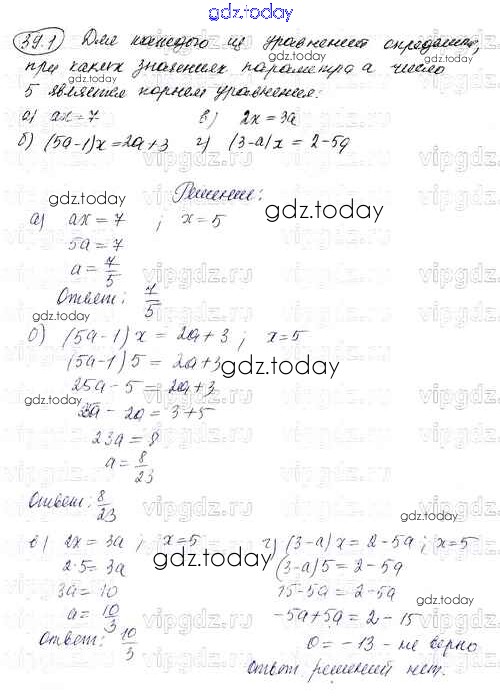 gdz.today
39.1 Для каждого из уравнений определите,
при каких значениях параметра а число
5 является корнем уравнения:
а) ax = 7 в) 2x = 3a
б) (5a-1)x = 2a+3 г) (3-a)x = 2-5a
Решение:
а) ax = 7 ; x = 5
5a = 7
a = 7/5
Ответ: 7/5
б) (5a-1)x = 2a+3 ; x=5
(5a-1)5 = 2a+3
25a - 5 = 2a+3
25a - 2a = 3+5
23a = 8
a = 8/23
Ответ: 8/23
в) 2x = 3a ; x=5
2·5 = 3a
3a = 10
a = 10/3
Ответ: 10/3
г) (3-a)x = 2-5a ; x=5
(3-a)5 = 2-5a
15-5a = 2-5a
-5a+5a = 2-15
0 = -13 - не верно
Ответ: решений нет.